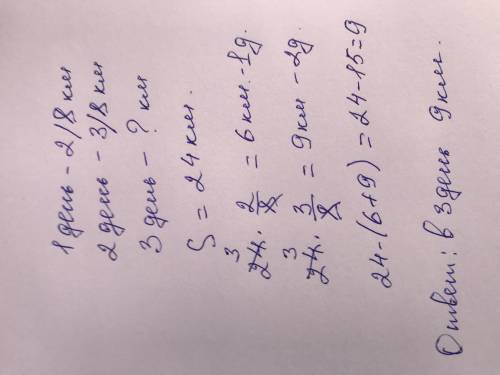 1 день - 2/8 км
2 день - 3/8 км
3 день - ? км
S = 24 км.
3
24 · 2/8 = 6 км - 1д.
3
24 · 3/8 = 9 км - 2д.
24-(6+9) = 24-15=9
Ответ: в 3 день 9 км.